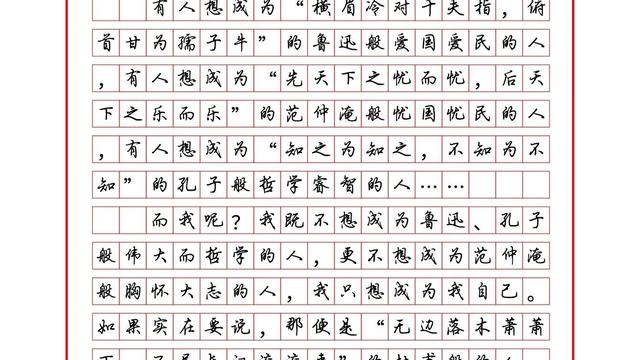 有人想成为“横眉冷对千夫指，俯
首甘为孺子牛”的鲁迅般爱国爱民的人
，有人想成为“先天下之忧而忧，后天
下之乐而乐”的范仲淹般忧国忧民的人
，有人想成为“知之为知之，不知为不
知”的孔子般哲学睿智的人……
而我呢？我既不想成为鲁迅、孔子
般伟大而哲学的人，更不想成为范仲淹
般胸怀大志的人，我只想成为我自己。
如果实在要说，那便是“无边落木萧萧